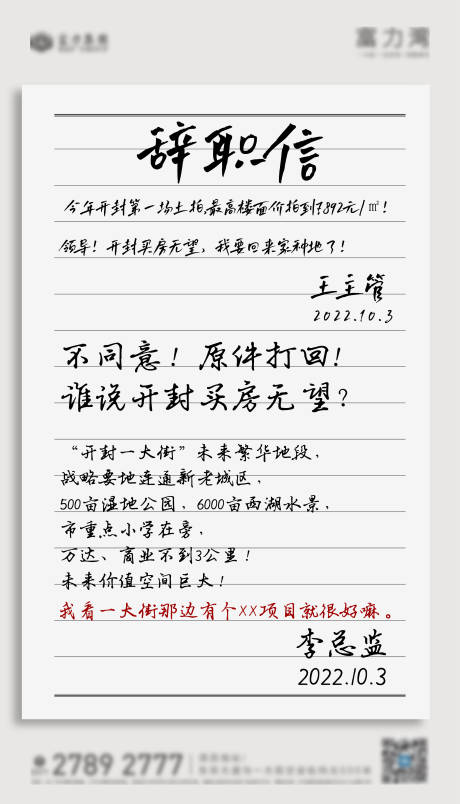 富力湾
辞职信
今年开封第一场土拍,最高楼面价拍到7892元/㎡!
领导!开封买房无望,我要回来家种地了!
王主管
2022.10.3
不同意!原件打回!
谁说开封买房无望?
“开封一大街”未来繁华地段,
战略要地连通新老城区,
500亩湿地公园,6000亩西湖水景,
市重点小学在旁,
万达、商业不到3公里!
未来价值空间巨大!
我看一大街那边有个XX项目就很好嘛。
李总监
2022.10.3
2789 2777